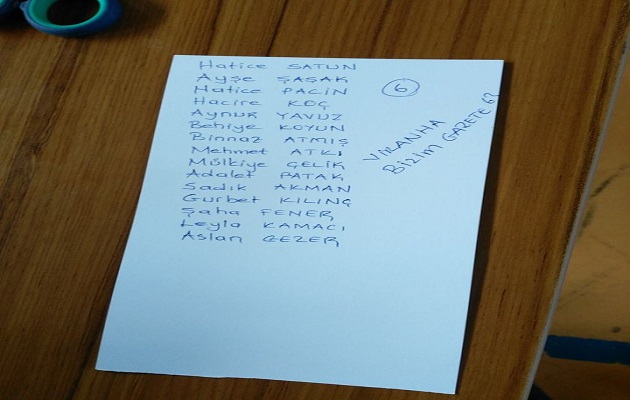 Hatice SATUN
Ayşe ŞAŞAK
Hatice PACİN
Hacire KOÇ
Aynur YAVUZ
Behiye KOYUN
Binnaz ATMIŞ
Mehmet ATKI
Mülkiye ÇELİK
Adalet PATAK
Sadık AKMAN
Gurbet KILINÇ
Şaha FENER
Leyla KAMACI
Aslan GEZER
6
VİRANHA
BİZİM GAZETE 63